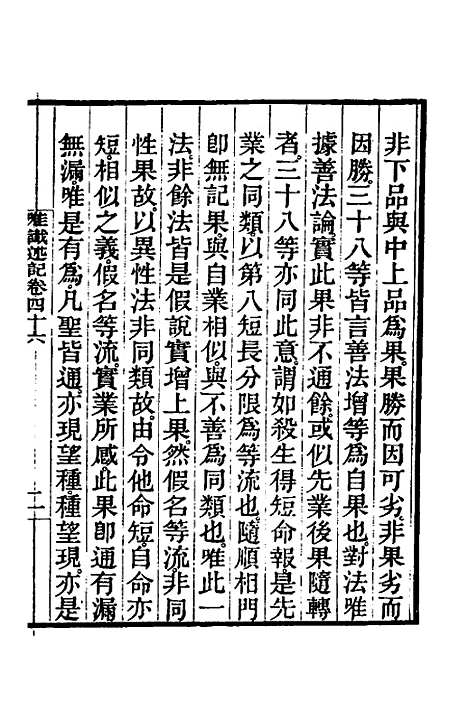 非下品與中上品爲果果勝而因可劣非果劣而
因勝三十八等皆言善法增等爲自果也對法唯
據善法論實此果非不通餘或似先業後果隨轉
者三十八等亦同此意謂如殺生得短命報是先
業之同類以第八短長分限爲等流也隨順相門
卽無記果與自業相似與不善爲同類也唯此一
法非餘法皆是假說實增上果然假名等流非同
性果故以異性法非同類故由令他命短自命亦
短相似之義假名等流實業所感此果卽通有漏
無漏唯是有爲凡聖皆通亦現望種種望現亦是
唯識述記卷四十六